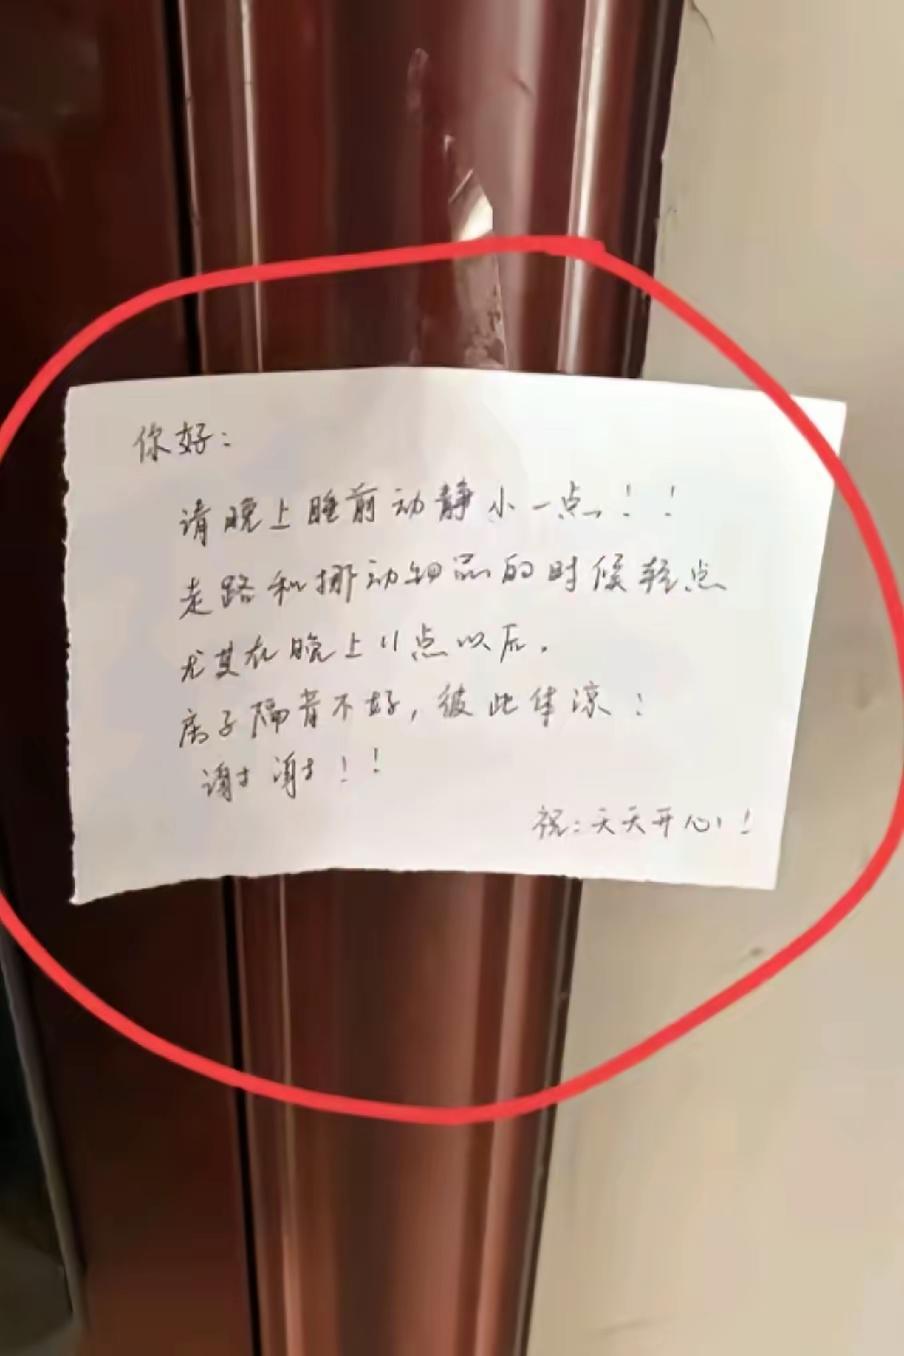 你好：
请晚上睡前动静小一点！！
走路和挪动物品的时候轻点
尤其在晚上11点以后．
房子隔音不好，彼此体凉！
谢谢！！
祝：天天开心！！